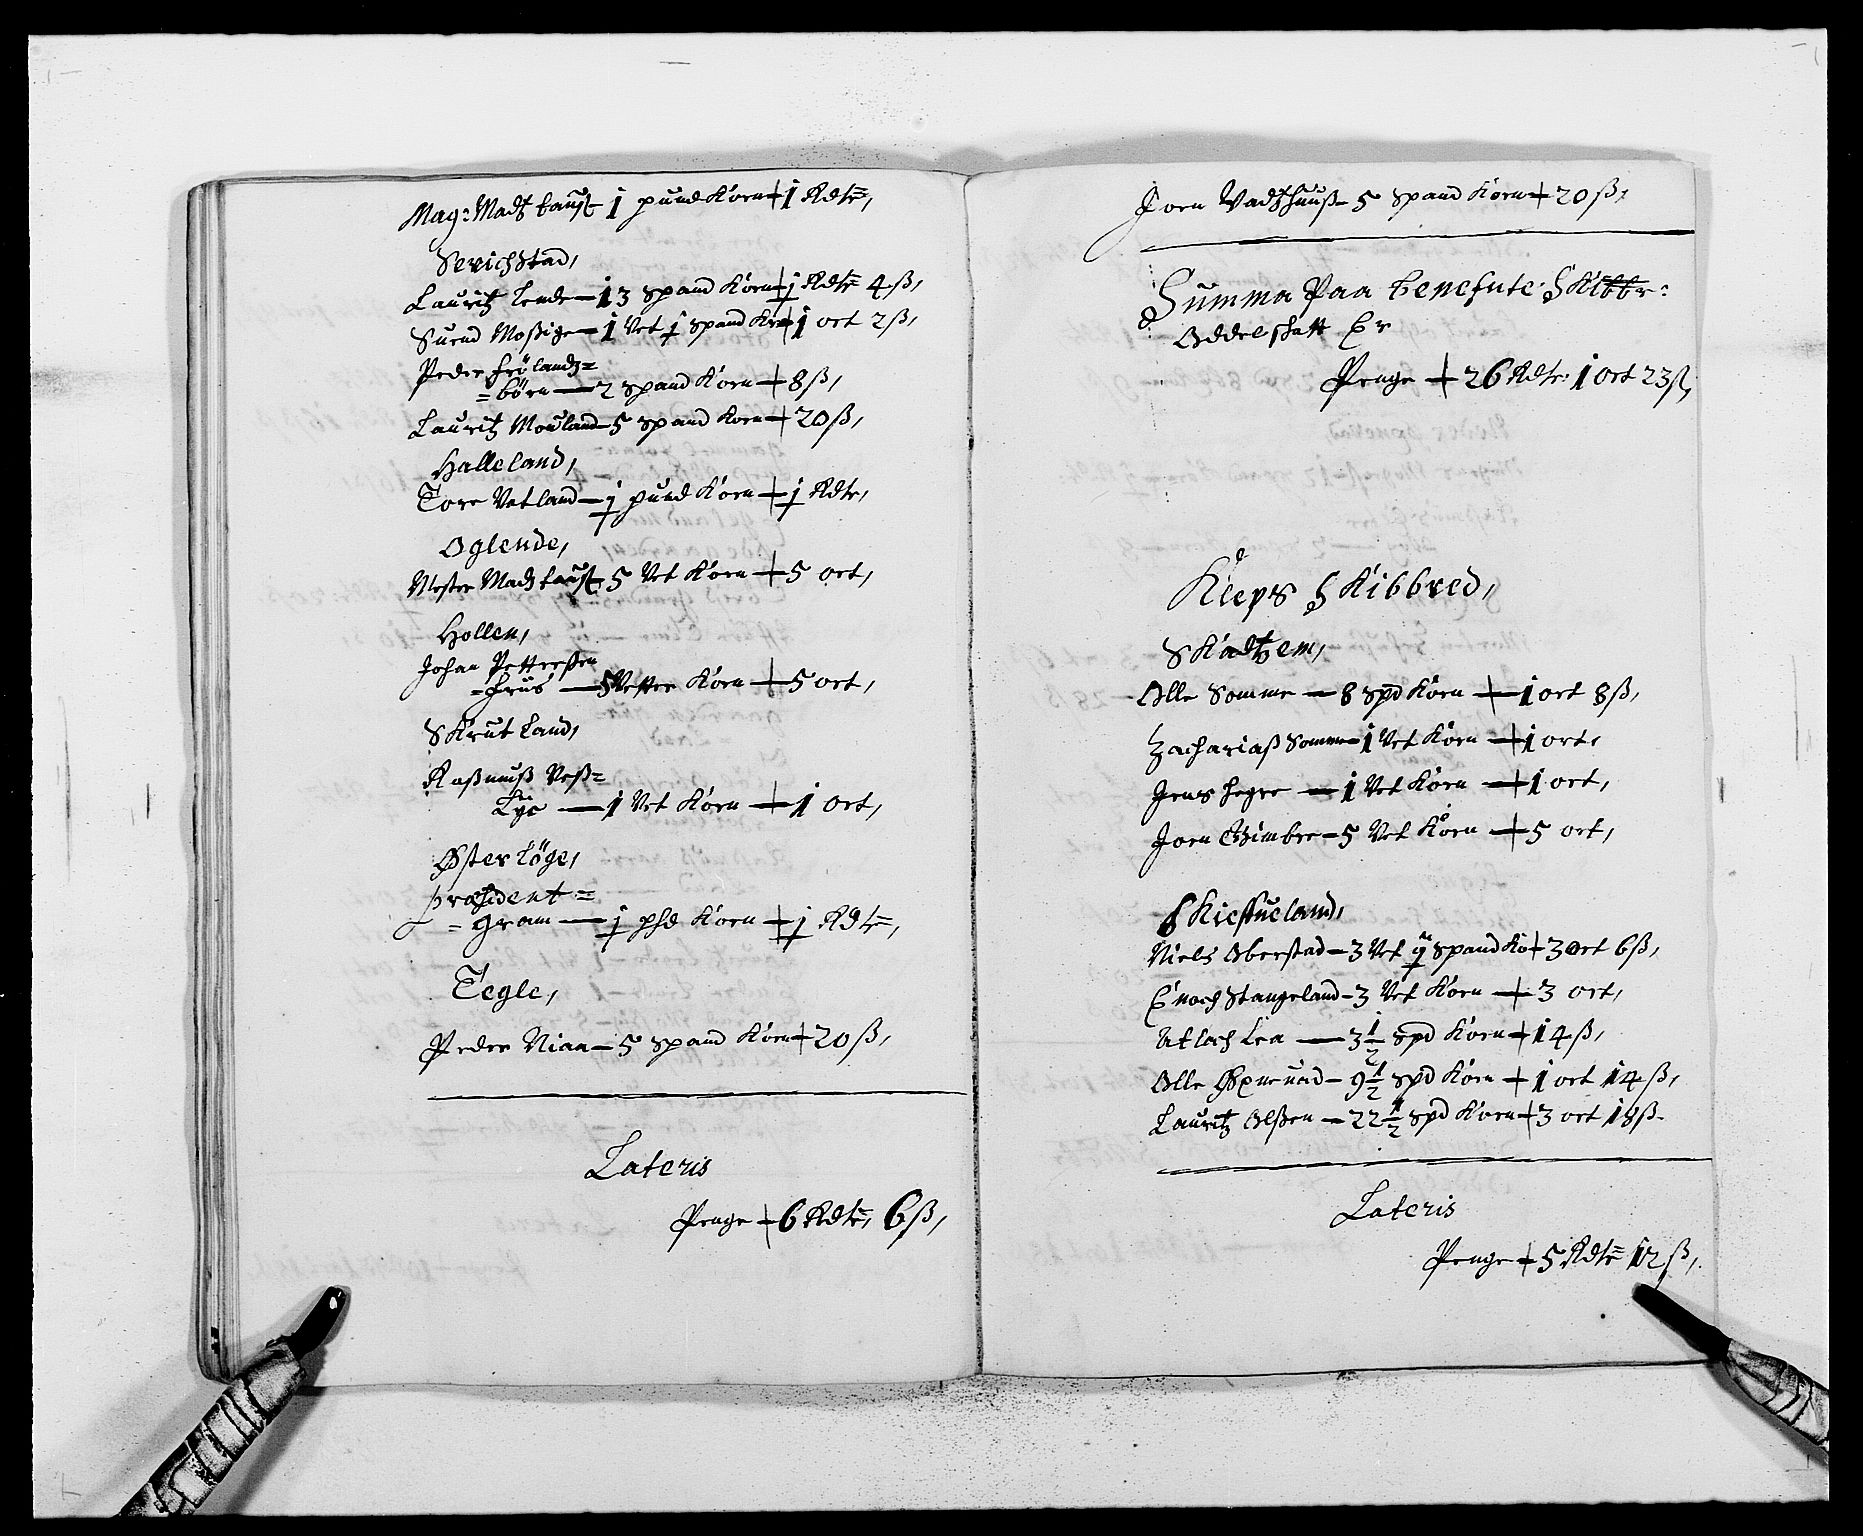 Mag: Madtz Taust 1 pund Korn + 1 Rdlr,
Serichstad,
Lauritz Lende — 13 spand Korn + 1 Rdlr 4 ß,
Suend Moßige — 1 Vet 1 spand Kor + 1 ort 2 ß,
Peder Frölandz=
=börn — 2 spand Korn + 8 ß,
Lauritz Mouland — 5 spand Korn + 20 ß,
Halleland,
Tore Vetland — 1 pund Korn + 1 Rdlr,
Oglende,
Mester Madtz Taust 5 Vet Korn + 5 ort,
Hollen,
Johan Petterßen
=Frus — 5 Vetter Korn + 5 ort,
Skrutland,
Raßmuß Veß=
Lye — 1 Vet Korn + 1 ort,
Østerlöge,
Præsident=
=Gram — 1 pd Korn + 1 Rdlr,
Tegle,
Peder Niaa — 5 spand Korn + 20 ß,
Lateris
Penge + 6 Rdlr, 6 ß,
Jorn Vadtzhuuß — 5 spand Korn + 20 ß,
Summa Paa Benefute Skibbr:
Oddelskatt Er
Penge + 26 Rdlr: 1 Ort 23 ß,
Kleps Skibbred,
Skadtzem,
Olle Somme — 8 spd Korn + 1 ort 8 ß,
Zachariaß Somme — 1 Vet Korn + 1 ort,
Jens Hegre — 1 Vet Korn + 1 ort,
Jorn Gimbre — 5 Vet Korn + 5 ort,
Skiefueland,
Niels Oberstad — 3 Vet 1½ spand Ko + 3 ort 6 ß,
Enoch Stangeland — 3 Vet Korn + 3 ort,
Atlach Lea — 3½ spd Korn + 14 ß,
Olle Øxneuad — 9½ spd Korn + 1 ort 14 ß,
Lauritz Olßen — 22½ spd Korn + 3 ort 18 ß.
Lateris
Penge + 5 Rdlr 12 ß,